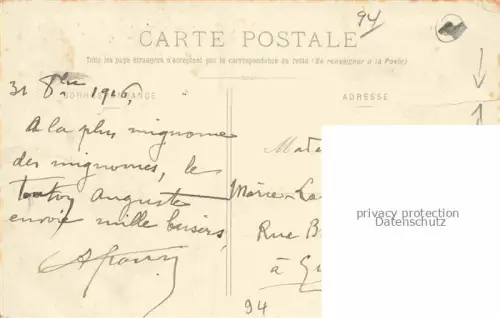 94
CARTE POSTALE
Tous les pays étrangers n'acceptent pas la correspondance au recto (Se renseigner à la Poste)
CORRESPONDANCE
31 8bre 1906,
A la plus mignonne
des mignonnes, le
tonton Auguste
envoie mille baisers,
ADRESSE
Marie-
Rue
à
privacy protection
Datenschutz
94